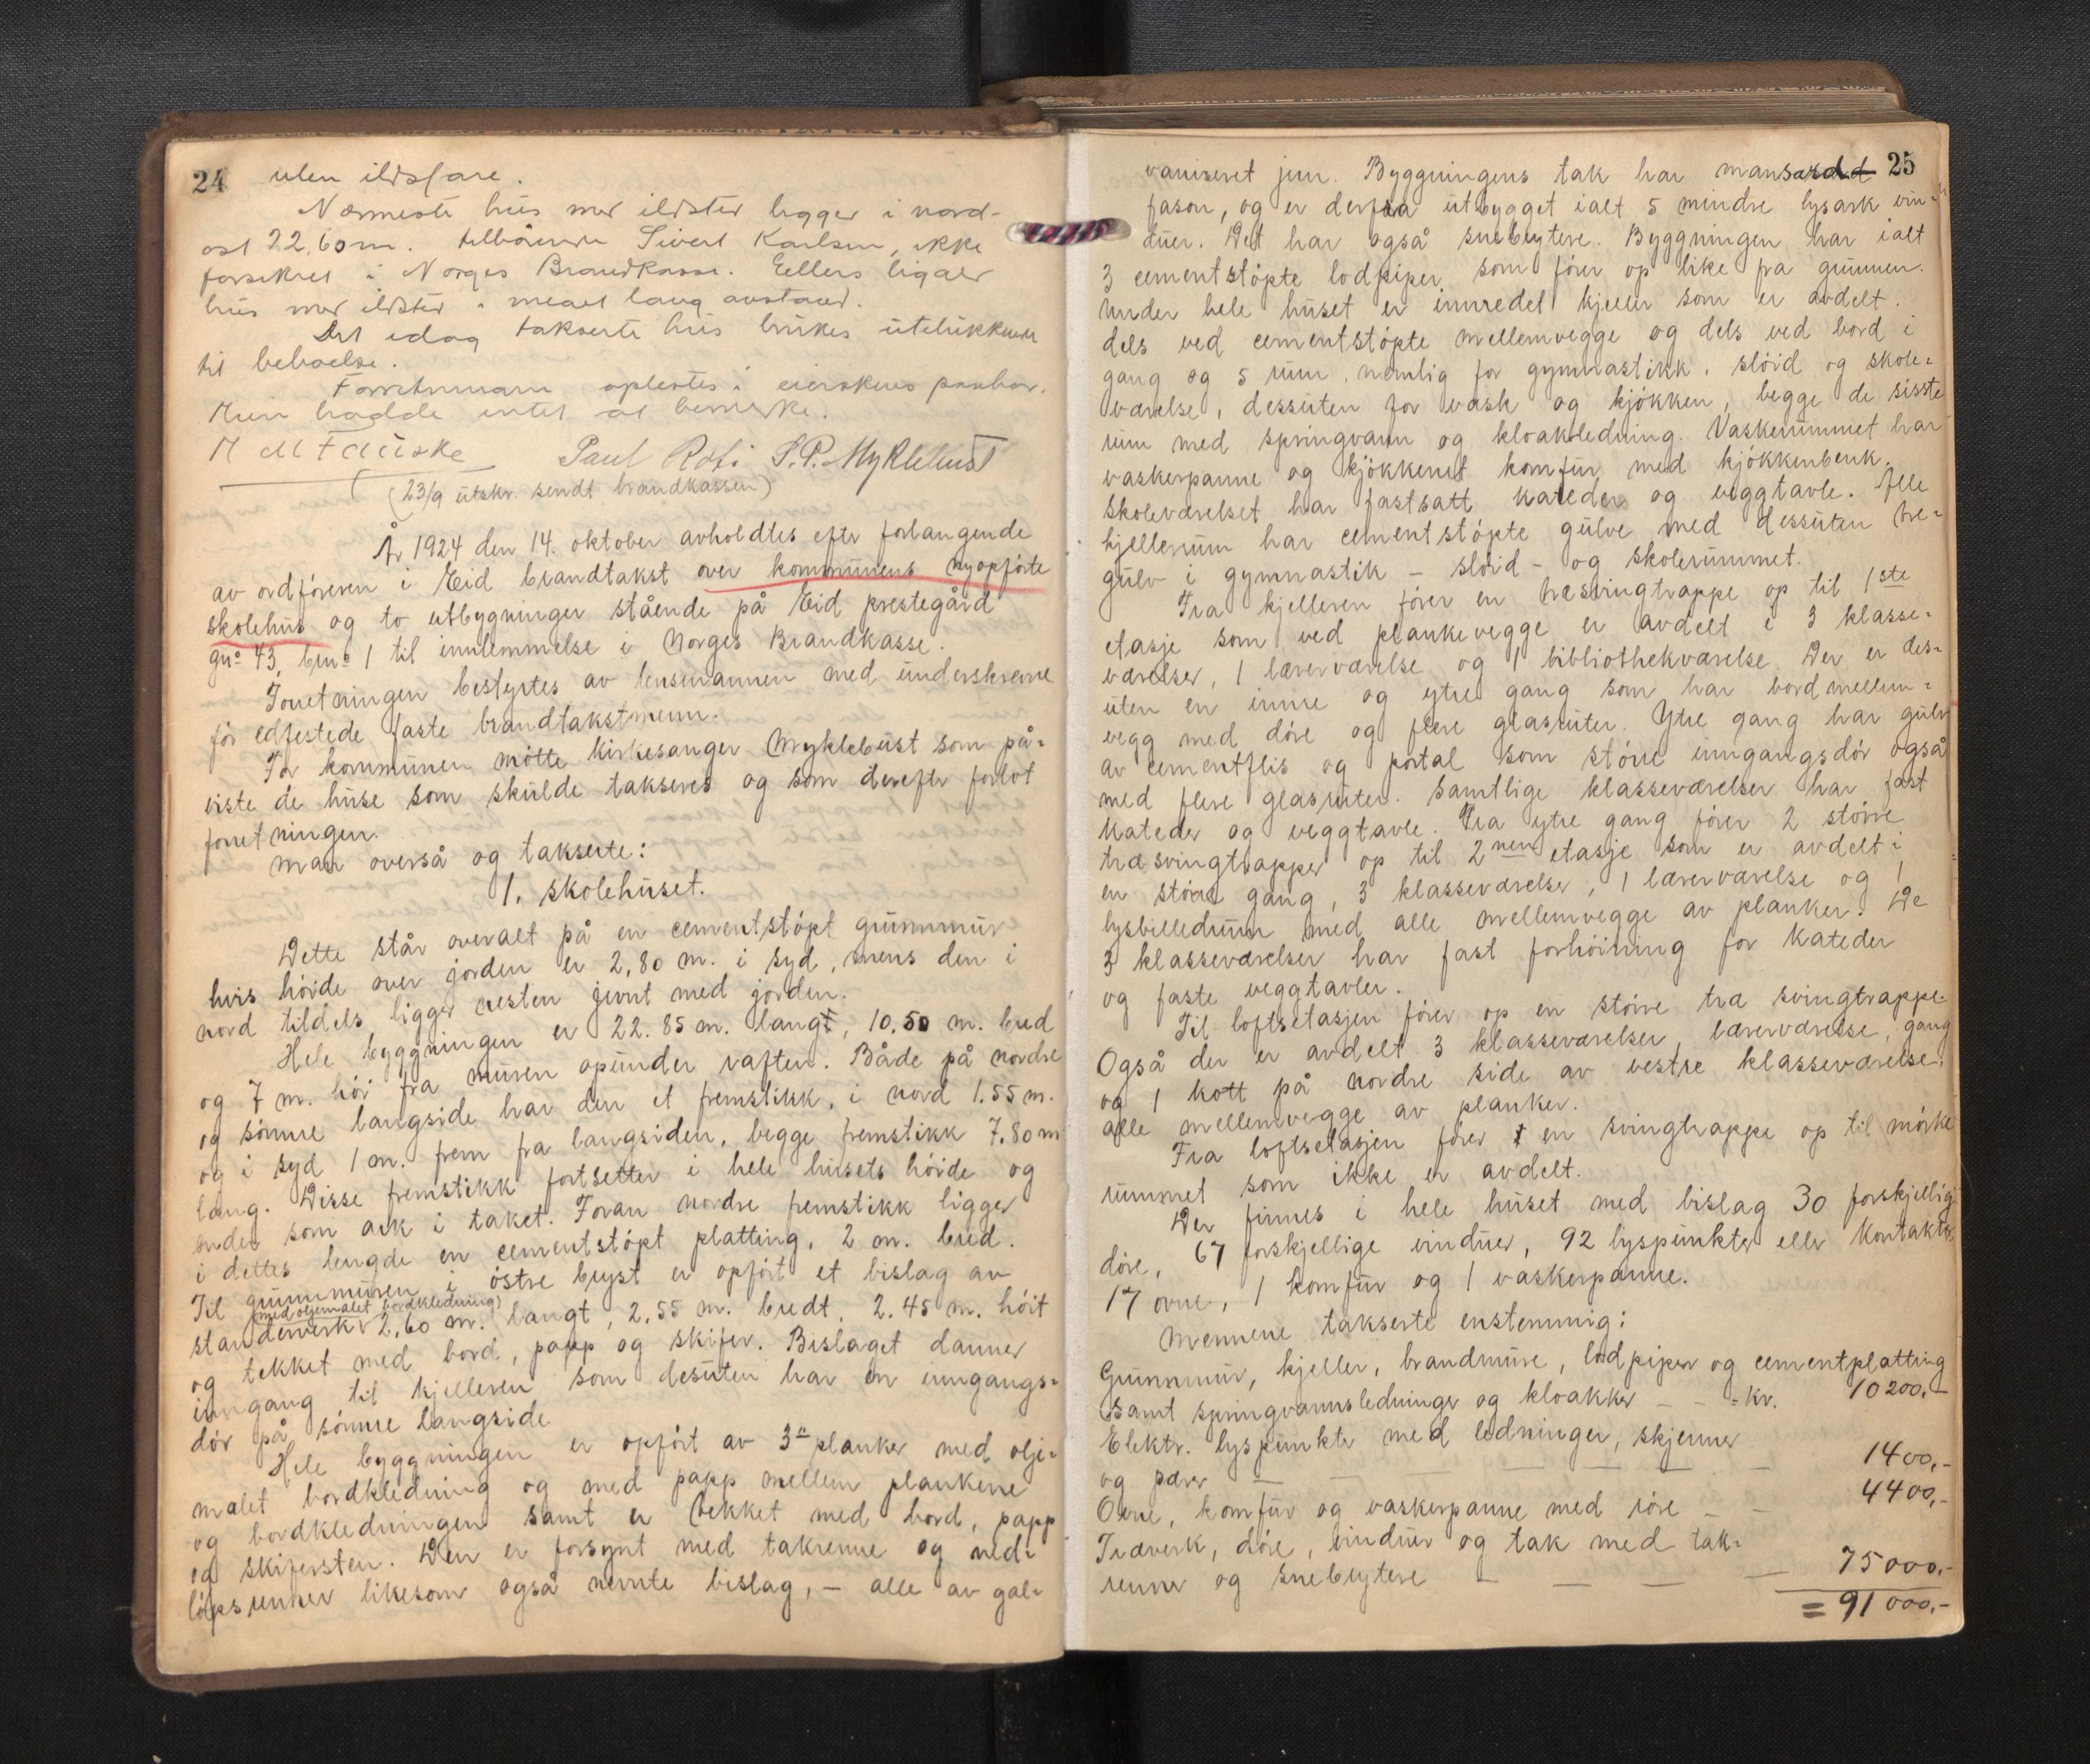 24 uten ildsfare.
Nærmeste hus med ildsted ligger i nord-
ost 22,60 m. tilhørende Sivert Karlsen, ikke
forsikret i Norges Brandkasse. Eellers ligger
hus med ildsted i meget lang avstand.
Det idag takserte hus brukes utelukkende
til beboelse.
Forretningen oplestes i eierskens påhør.
Hun hadde intet at bemerke.
M Fauske Paul Roti S.P. Myklebust
(23/9 utskr. sendt brandkassen)
År 1924 den 14. oktober avholdtes efter forlangende
av ordføreren i Eid brandtakst over kommunens nyopførte
skolehus og to utbygninger stående på Eid prestegård
gno 43, bno 1 til innlemmelse i Norges Brandkasse.
Forretningen bestyrtes av lensmannen med underskrevne
før edfestede faste brandtakstmenn.
For kommunen møtte kirkesanger Myklebust som på-
viste de huse som skulde takseres og som derefter forlot
forretningen.
Man overså og takserte:
1. skolehuset.
Dette står overalt på en cementstøpt grunnmur
hvis høide over jorden er 2,80 m. i syd, mens den i
nord tildels ligger nesten jevnt med jorden.
Hele byggningen er 22.85 m. langt, 10,50 m. bred
og 7 m. høi fra muren opunder raften. Både på nordre
og sønnre langside har den et fremstikk, i nord 1.55 m.
og i syd 1 m. frem fra langsiden, begge fremstikk 7.80 m
lang. Disse fremstikk fortsetter i hele husets høide og
ender som ark i taket. Foran nordre fremstikk ligger
i dettes lengde en cementstøpt platting, 2 m. bred.
Til grunnmuren i østre bryst er opført et bislag av
(med oljemalet bordkledning)
standerverk 2,60 m. langt, 2,55 m. bredt, 2.45 m. høit
og tekket med bord, papp og skifer. Bislaget danner
inngang til kjelleren som desuten har en inngangs-
dør på sønnre langside
Hele byggningen er opført av 3" planker med olje-
malet bordkledning og med papp mellem plankene
og bordkledningen samt er tekket med bord, papp
og skifersten. Den er forsynt med takrenne og ned-
løpsrenner likesom også nevnte bislag, – alle av gal-
25
vaniseret jern. Byggningens tak har mansard
fason, og er derfra utbygget ialt 5 mindre lysark vin-
duer. Det har også snebrytere. Byggningen har ialt
3 cementstøpte lodpiper som fører op like fra grunnen.
Under hele huset er innredet kjeller som er avdelt.
dels ved cementstøpte mellemvegge og dels ved bord i
gang og 5 rum, nemlig for gymnastikk, sløid og skole-
værelse, dessuten for vask og kjøkken, begge de sisste
rum med springvann og kloakledning. Vaskerummet har
vaskerpanne og kjøkkenet komfur med kjøkkenbenk.
Skoleværelset har fastsatt kateder og veggtavle. Alle
kjellerrum har cementstøpte gulve med dessuten tre-
gulv i gymnastik – sløid – og skolerummet.
Fra kjelleren fører en træsvingtrappe op til 1ste
etasje som ved plankevegge er avdelt i 3 klasse-
værelser, 1 lærerværelse og 1 bibliothekværelse. Der er des-
uten en innre og ytre gang som har bordmellem-
vegg med døre og flere glasruter. Ytre gang har gulv
av cementflis og portal som større inngangsdør også
med flere glasruter. Samtlige klasseværelser har fast
kateder og veggtavle. Fra ytre gang fører 2 større
træsvingtrapper op til 2nen etasje som er avdelt i
en større gang, 3 klasseværelser, 1 lærerværelse og 1
lysbilledrum med alle mellemvegge av planker. De
3 klasseværelser har fast forhøining for kateder
og faste veggtavler.
Til loftsetasjen fører op en større træ svingtrappe.
Også der er avdelt 3 klasseværelser, lærerværelse, gang
og 1 kott på nordre side av vestre klasseværelse.
alle mellemvegge av planker.
Fra loftsetasjen fører en svingtrappe op til mørke
rummet som ikke er avdelt.
Der finnes i hele huset med bislag 30 forskjellig
døre, 67 forskjellige vinduer, 92 lyspunkter eller kontakter
17 ovne, 1 komfur og 1 vaskerpanne.
Mennene takserte enstemmig:
Grunnmur, kjeller, brandmure, lodpiper og cementplatting
samt springvannsledninger og kloakker – – = kr. 10200,-
Elektr. lyspunkter med ledninger, skjermer
og pærer – – – – – – 1400,-
Ovne, komfur og vaskerpanne med røre – – 4400,-
Træverk, døre, vinduer og tak med tak-
renner og snebrytere – – – – 75000,-
= 91000,-